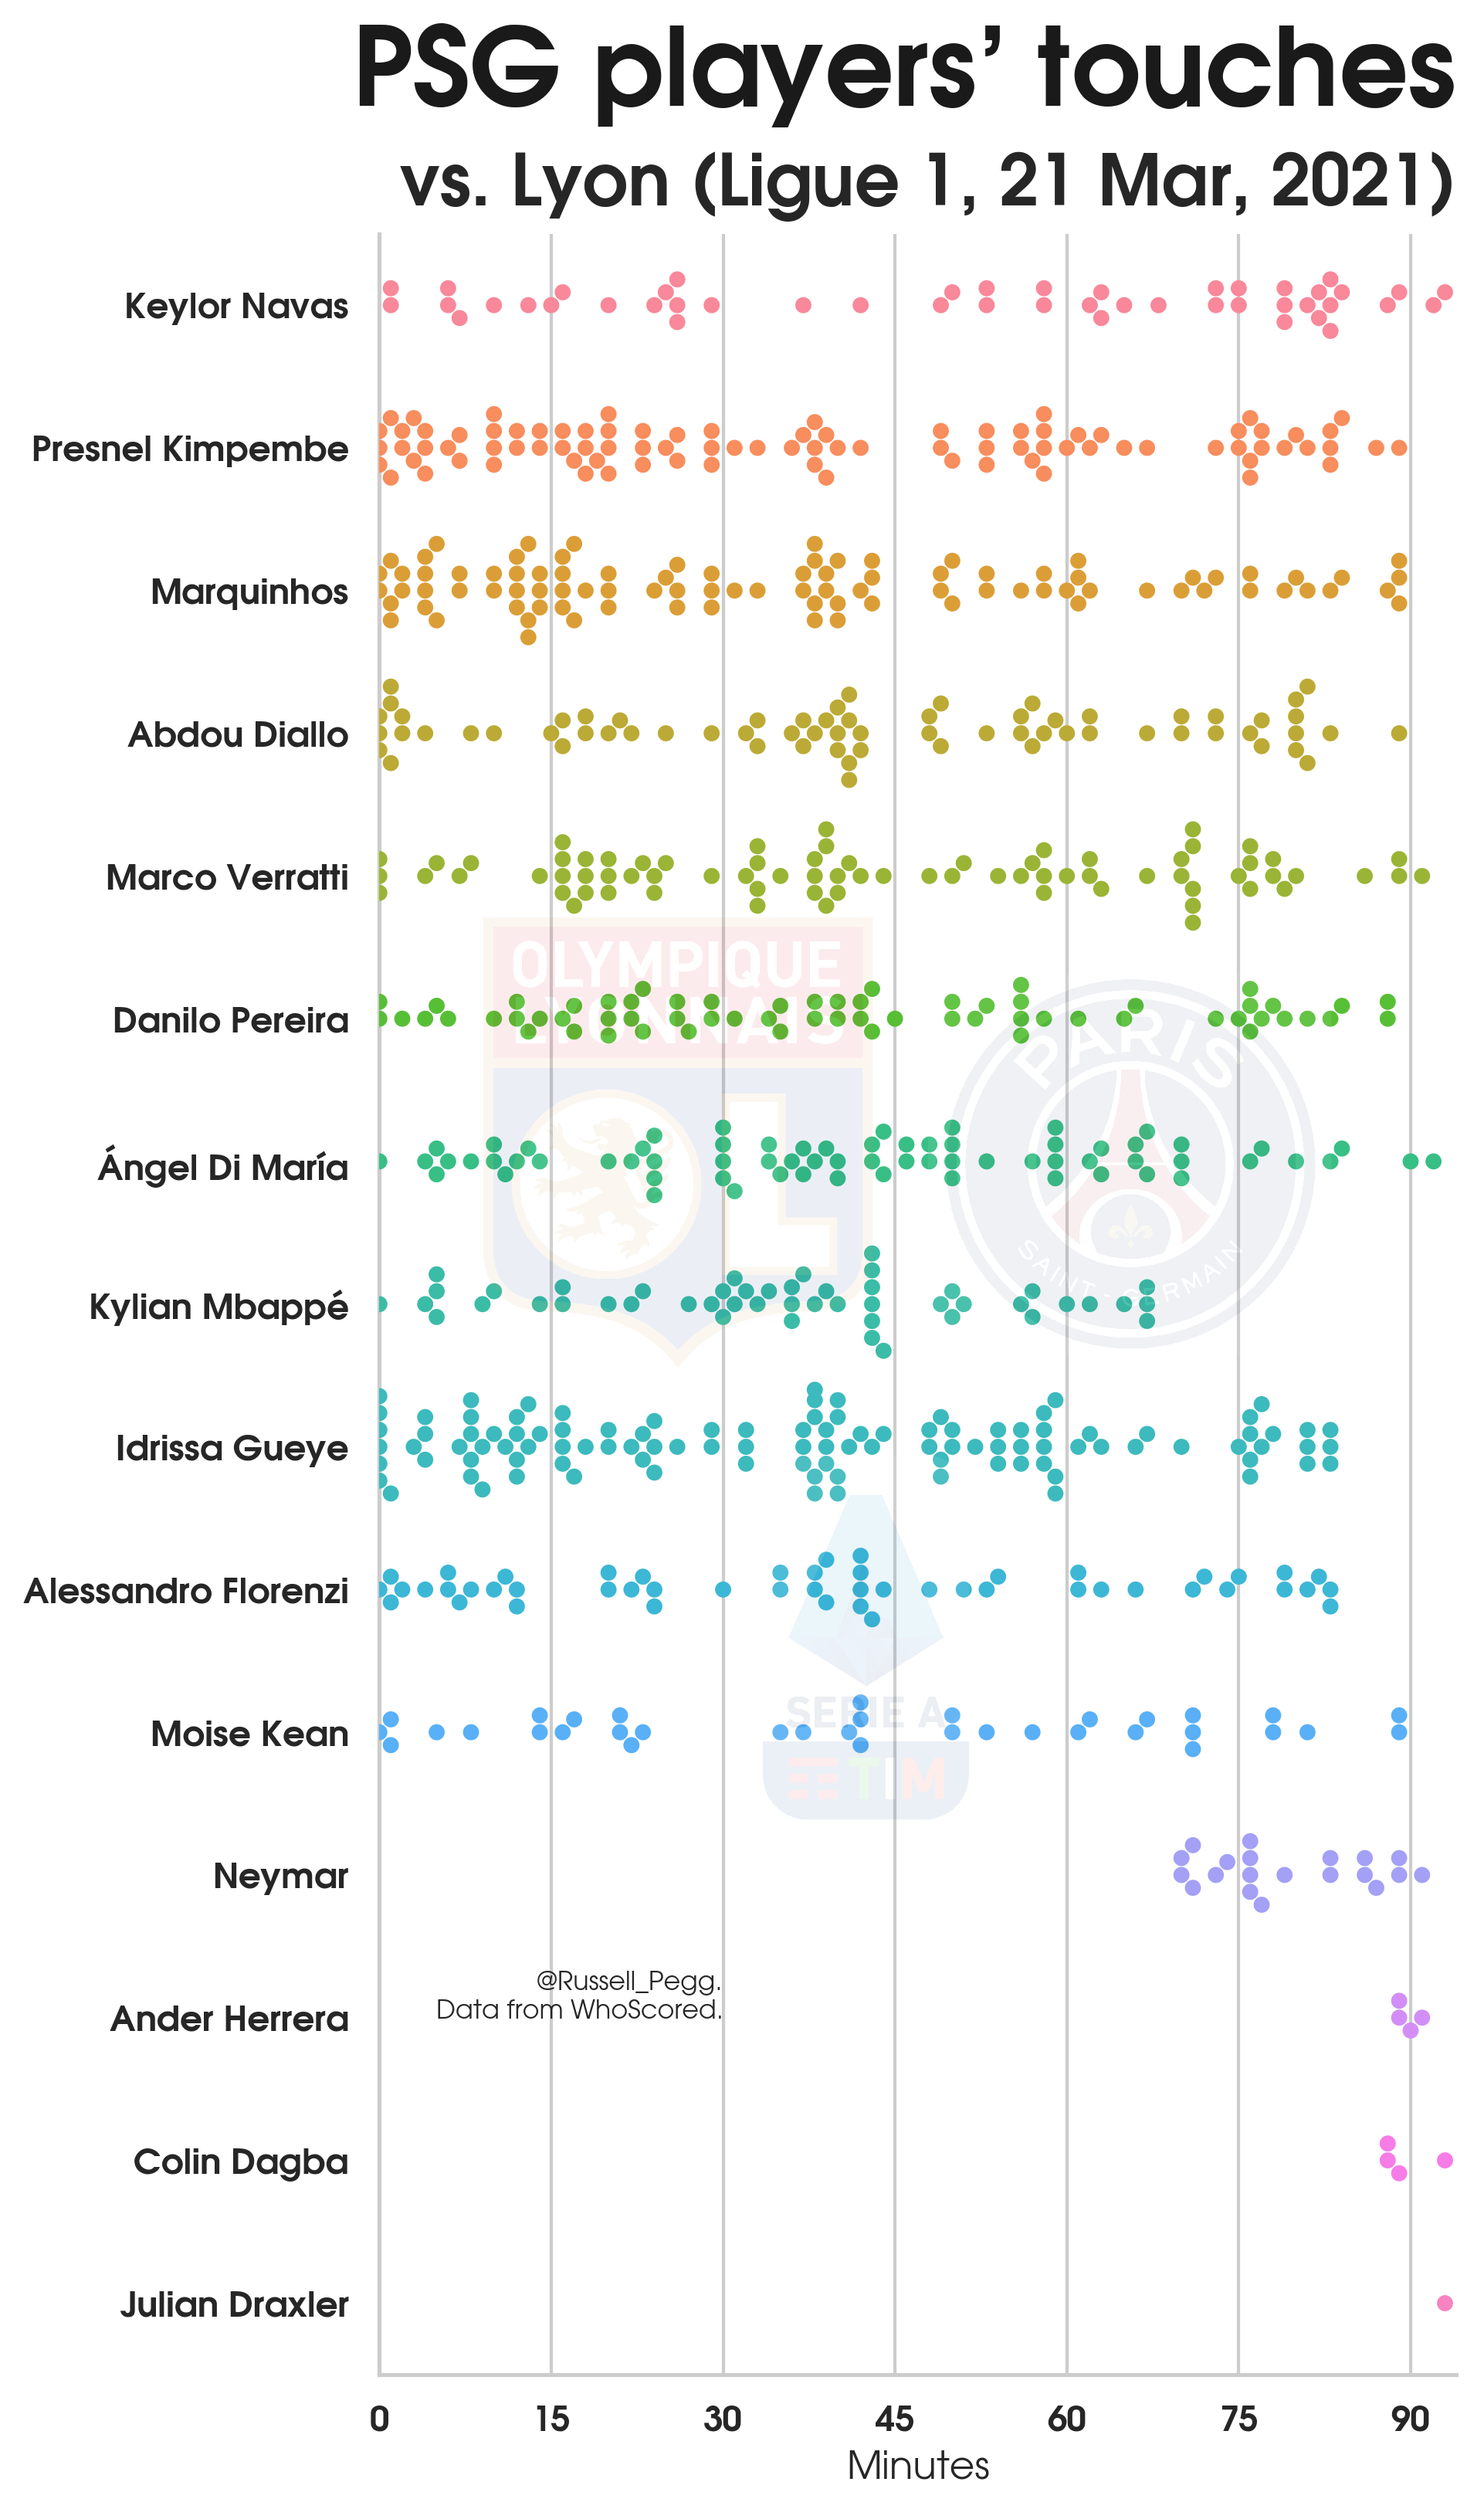 PSG players’ touches
vs. Lyon (Ligue 1, 21 Mar, 2021)
Keylor Navas
Presnel Kimpembe
Marquinhos
Abdou Diallo
Marco Verratti
Danilo Pereira
OLYMPIQUE
LYONNAIS
PARIS
Ángel Di María
OL
SAINT - GERMAIN
Kylian Mbappé
Idrissa Gueye
Alessandro Florenzi
SERIE A
Moise Kean
TIM
Neymar
@Russell_Pegg.
Data from WhoScored.
Ander Herrera
Colin Dagba
Julian Draxler
0 15 30 45 60 75 90
Minutes